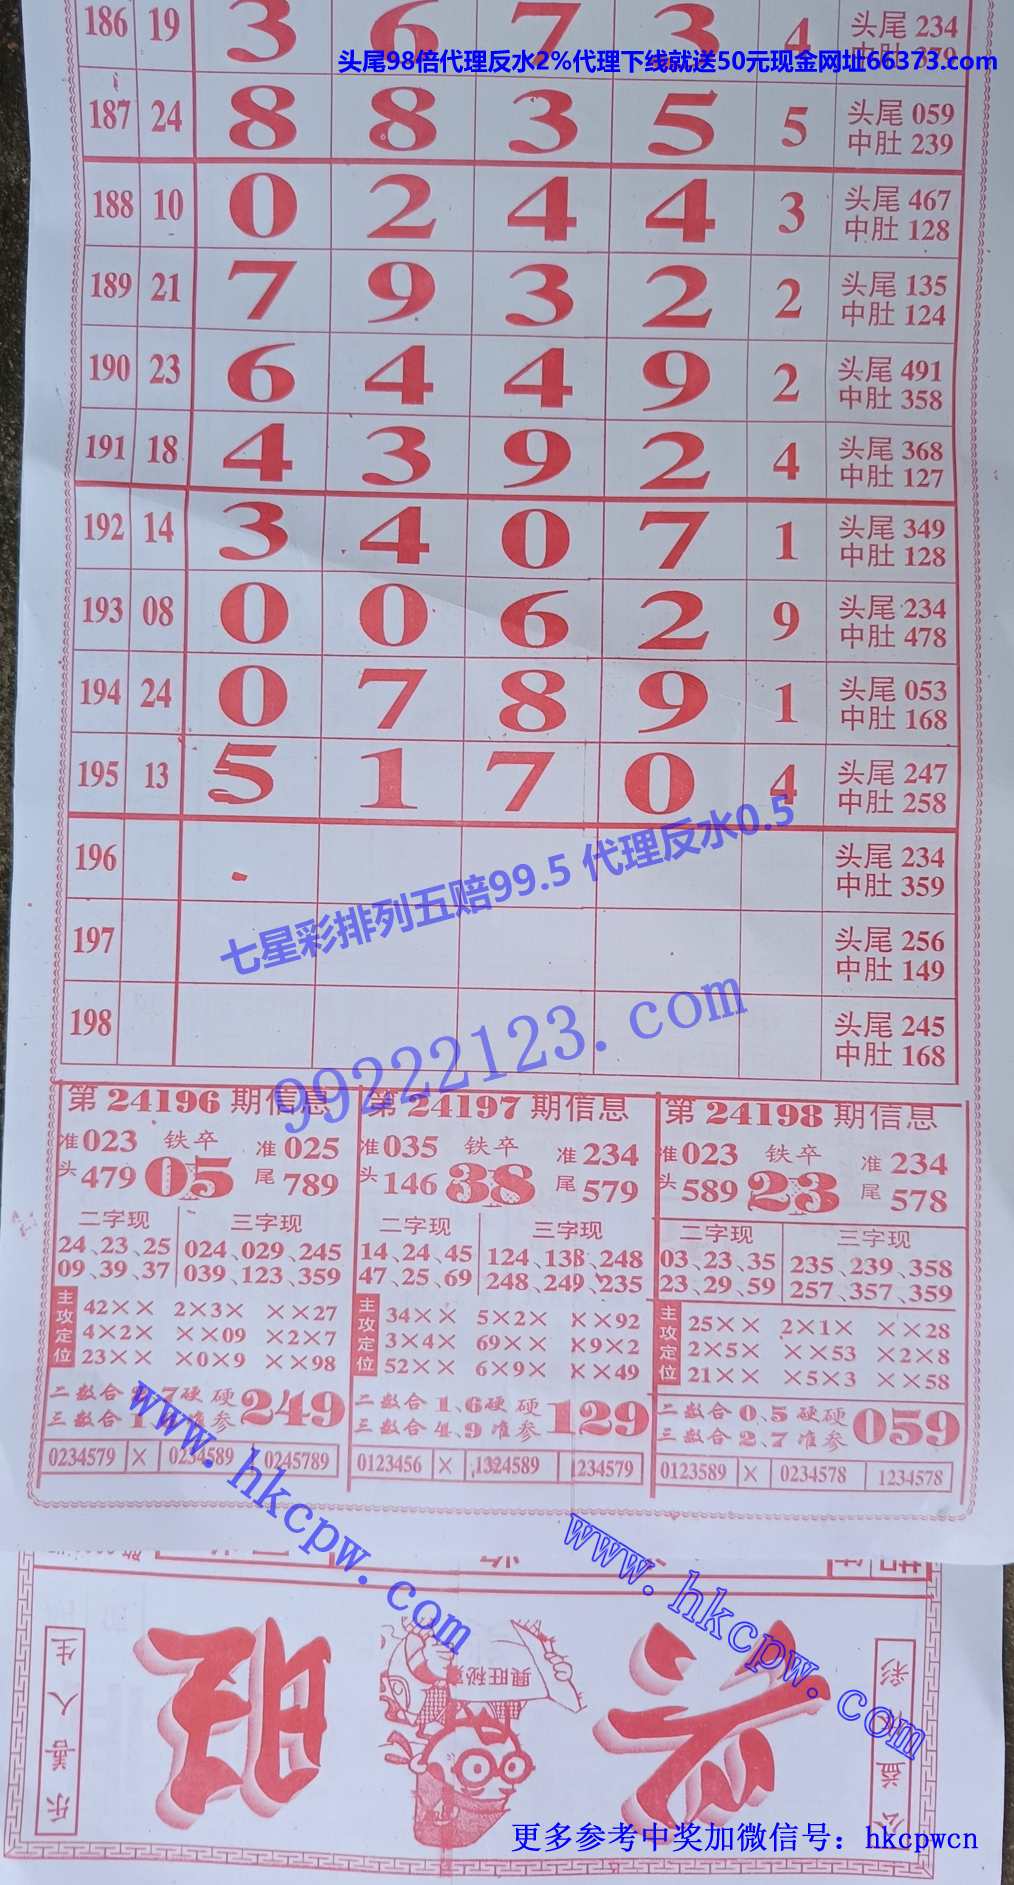 186 19 3 6 7 3 4 头尾 234
中肚 379
头尾98倍代理反水2%代理下线就送50元现金网址66373.com
187 24 8 8 3 5 5 头尾 059
中肚 239
188 10 0 2 4 4 3 头尾 467
中肚 128
189 21 7 9 3 2 2 头尾 135
中肚 124
190 23 6 4 4 9 2 头尾 491
中肚 358
191 18 4 3 9 2 4 头尾 368
中肚 127
192 14 3 4 0 7 1 头尾 349
中肚 128
193 08 0 0 6 2 9 头尾 234
中肚 478
194 24 0 7 8 9 1 头尾 053
中肚 168
195 13 5 1 7 0 4 头尾 247
中肚 258
196 头尾 234
中肚 359
七星彩排列五赔99.5 代理反水0.5
197 头尾 256
中肚 149
99222123.com
198 头尾 245
中肚 168
第24196期信息
准 023 铁卒 准 025
头 479 05 尾 789
二字现 三字现
24、23、25 024、029、245
09、39、37 039、123、359
主攻定位
42×× 2×3× ××27
4×2× ××09 ×2×7
23×× ×0×9 ××98
二数合 7硬 硬 249
三数合 准参
0234579 × 0234589 0245789
第24197期信息
准 035 铁卒 准 234
头 146 38 尾 579
二字现 三字现
14、24、45 124、138、248
47、25、69 248、249、235
主攻定位
34×× 5×2× ××92
3×4× 69×× ×9×2
52×× 6×9× ××49
二数合 1、6硬 硬 129
三数合 4、9 准参
0123456 × 1324589 1234579
第24198期信息
准 023 铁卒 准 234
头 589 23 尾 578
二字现 三字现
03、23、35 235、239、358
23、29、59 257、357、359
主攻定位
25×× 2×1× ××28
2×5× ××53 ×2×8
21×× ×5×3 ××58
二数合 0、5 硬硬 059
三数合 2、7 准参
0123589 × 0234578 1234578
www.hkcpw.com
www.hkcpw.com
乐善人生
旺
興旺秘
兴
公益 彩
更多参考中奖加微信号：hkcpwcn